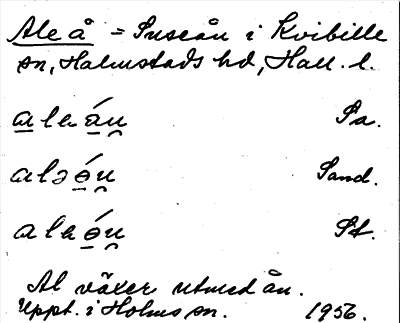 Ale å = Suseån i Kvibille
sn, Halmstads hd, Hall. l.
a̲la̲ɑ̲́u̯ Sa.
a̲lə ə̲́u̯ Sand.
a̲la ə̲́u̯ St.
Al växer utmed ån.
Uppt. i Holms sn. 1956.